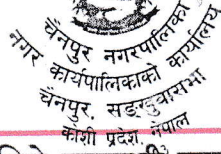 चैनपुर नगरपालिका
नगर कार्यपालिकाको कार्यालय
चैनपुर, सङ्खुवासभा
कोशी प्रदेश, नेपाल